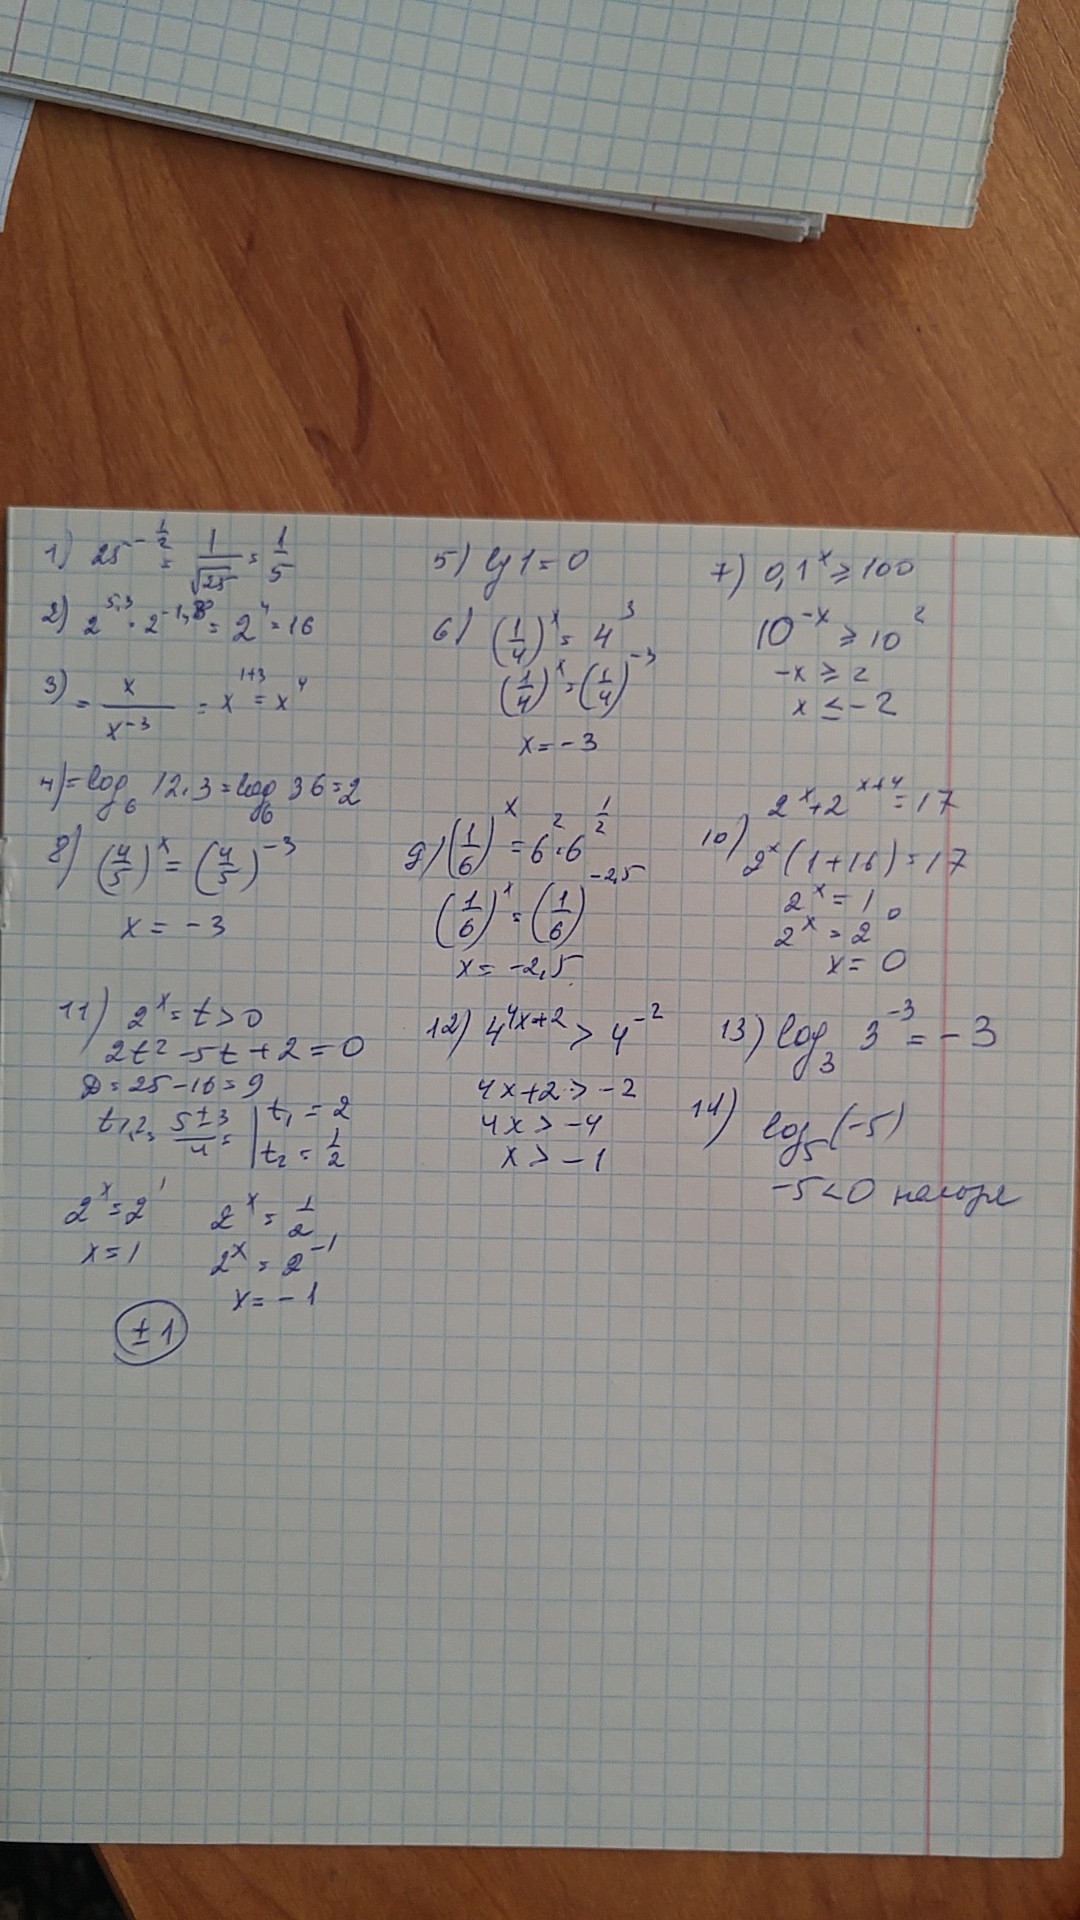 1) 25^{-\frac{1}{2}} = \frac{1}{\sqrt{25}} = \frac{1}{5}
2) 2^{5,3} \cdot 2^{-1,3} = 2^4 = 16
3) = \frac{x}{x^{-3}} = x^{1+3} = x^4
4) = log_6 12 \cdot 3 = log_6 36 = 2
5) lg 1 = 0
6) (\frac{1}{4})^x = 4^3
(\frac{1}{4})^x = (\frac{1}{4})^{-3}
x = -3
7) 0,1^x ≥ 100
10^{-x} ≥ 10^2
-x ≥ 2
x ≤ -2
8) (\frac{4}{5})^x = (\frac{4}{5})^{-3}
x = -3
9) (\frac{1}{6})^x = 6^2 \cdot 6^{\frac{1}{2}}
(\frac{1}{6})^x = (\frac{1}{6})^{-2,5}
x = -2,5
10) 2^x + 2^{x+4} = 17
2^x (1+16) = 17
2^x = 1
2^x = 2^0
x = 0
11) 2^x = t > 0
2t^2 - 5t + 2 = 0
D = 25 - 16 = 9
t_{1,2} = \frac{5 ± 3}{4} = | t_1 = 2
t_2 = \frac{1}{2}
2^x = 2^1
x = 1
2^x = \frac{1}{2}
2^x = 2^{-1}
x = -1
± 1
12) 4^{4x+2} > 4^{-2}
4x + 2 > -2
4x > -4
x > -1
13) log_3 3^{-3} = -3
14) log_5 (-5)
-5 < 0